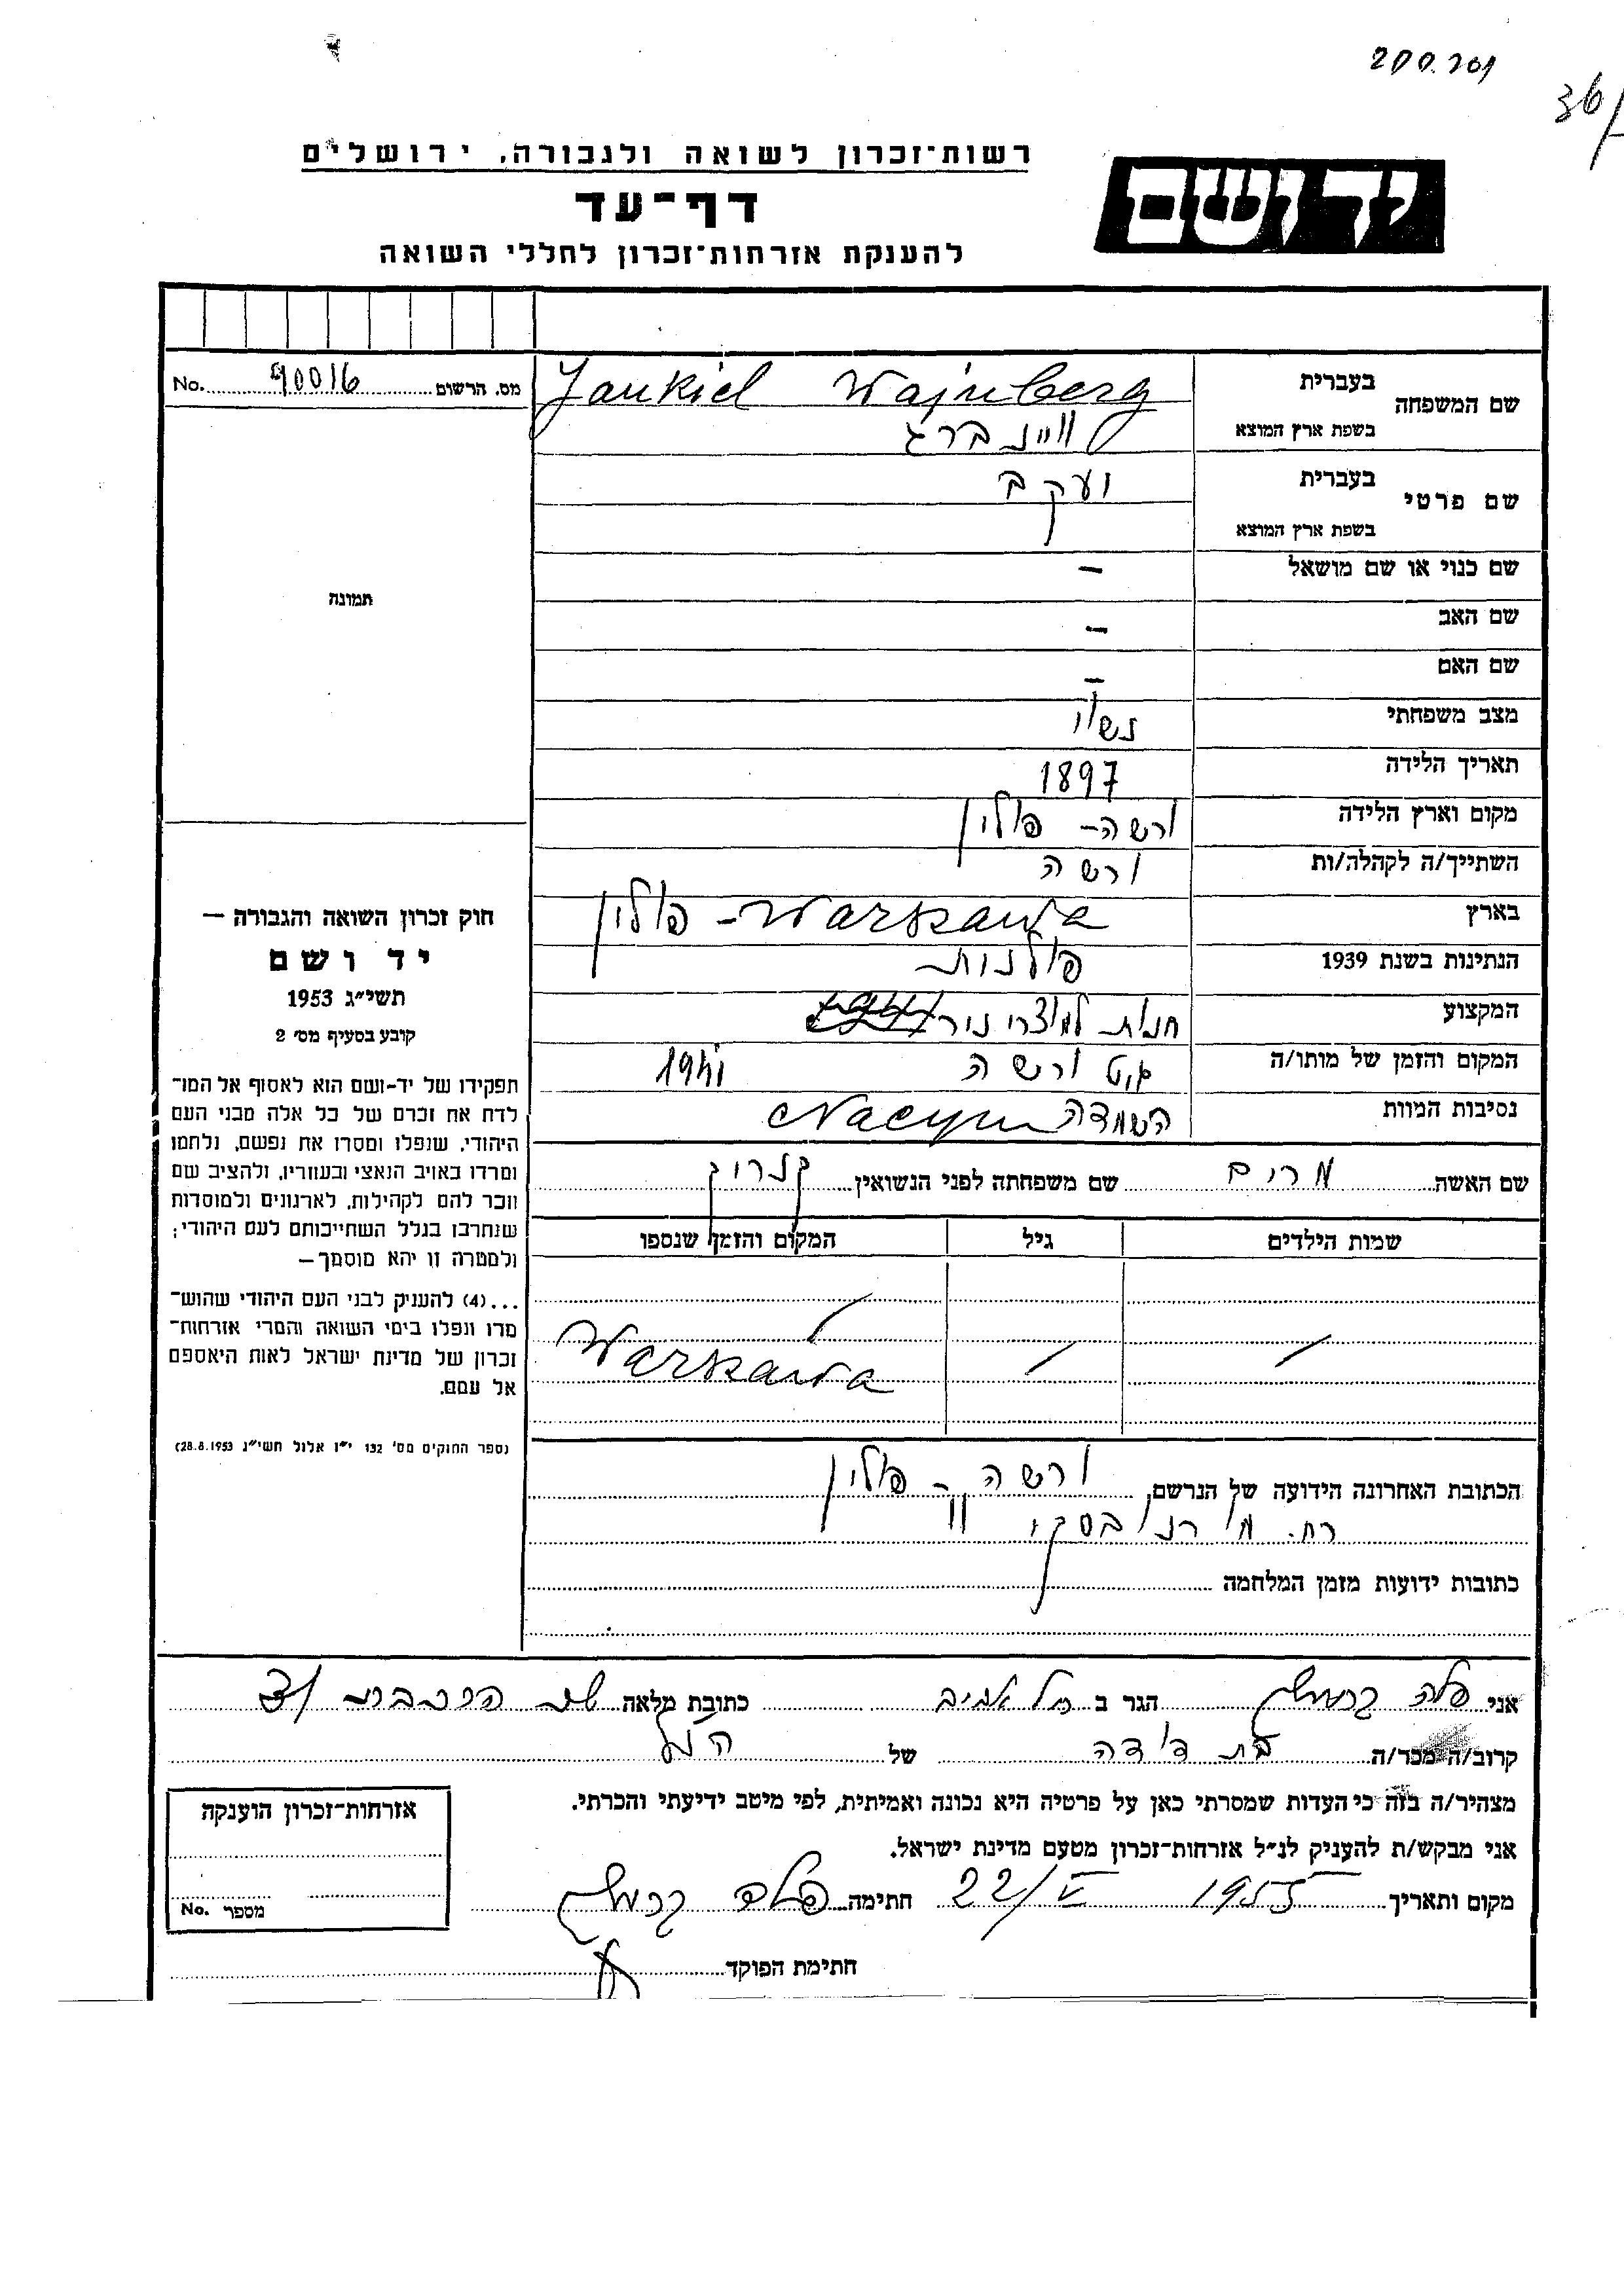 36/
רשות־זכרון לשואה ולגבורה, ירושלים
יד ושם
דף־עד
להענקת אזרחות־זכרון לחללי השואה
מס. הרשום 90016 No.
תמונה
חוק זכרון השואה והגבורה —
יד ושם
תשי״ג 1953
קובע בסעיף מס׳ 2
תפקידו של יד-ושם הוא לאסוף אל המו־
לדת את זכרם של כל אלה מבני העם
היהודי, שנפלו ומסרו את נפשם, נלחמו
ומרדו באויב הנאצי ובעוזריו, ולהציב שם
וזכר להם לקהילות, לארגונים ולמוסדות
שנחרבו בגלל השתייכותם לעם היהודי;
ולמטרה זו יהא מוסמך—
...(4) להעניק לבני העם היהודי שהוש־
מדו ונפלו בימי השואה והמרי אזרחות־
זכרון של מדינת ישראל לאות היאספם
אל עמם.
(ספר החוקים מס׳ 132 י״ז אלול תשי״ג 28.8.1953)
שם המשפחה
בעברית Jankiel Wajnberg
בשפת ארץ המוצא ווינברג
שם פרטי
בעברית יעקב
בשפת ארץ המוצא
שם כנוי או שם מושאל —
שם האב —
שם האם —
מצב משפחתי נשוי
תאריך הלידה 1897
מקום וארץ הלידה ורשה - פולין
השתייך/ה לקהלה/ות ורשה
בארץ Warszawa - פולין
הנתינות בשנת 1939 פולנית
המקצוע חנות למוצרי ניר
המקום והזמן של מותו/ה גיטו ורשה 1941
נסיבות המוות השמדה
שם האשה מרים שם משפחתה לפני הנשואין
שמות הילדים גיל המקום והזמן שנספו
/ / /
Warszawa
הכתובת האחרונה הידועה של הנרשם ורשה - פולין
רח.
כתובות ידועות מזמן המלחמה
אני פלה הגר ב תל אביב כתובת מלאה
קרוב/ה מכר/ה בת דודה של הנ״ל
מצהיר/ה בזה כי העדות שמסרתי כאן על פרטיה היא נכונה ואמיתית, לפי מיטב ידיעתי והכרתי.
אני מבקש/ת להעניק לנ״ל אזרחות־זכרון מטעם מדינת ישראל.
מקום ותאריך 1955 22/V חתימה פלה
חתימת הפוקד
אזרחות־זכרון הוענקה
מספר No.